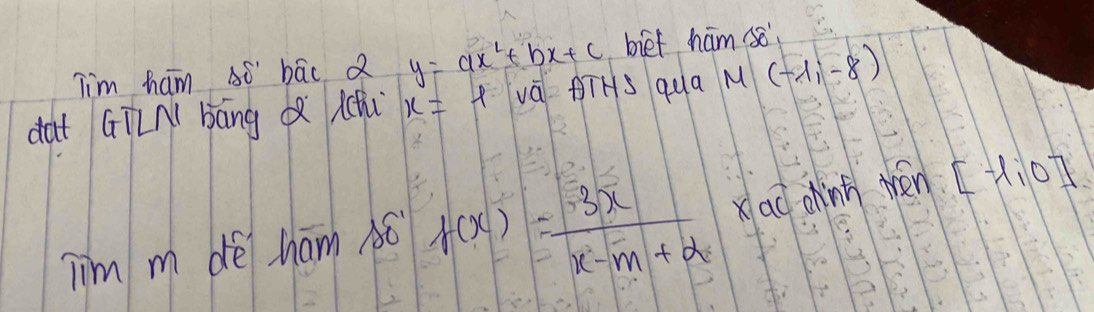 Tìm hàm số bậc 2 y = ax² + bx + c biết hàm số
đạt GTLN bằng 2 khi x = 1 và ĐTHS qua M (-1; -8)
Tìm m để hàm số f(x) = 3x / (x - m + 2) xác định trên [-1; 0]